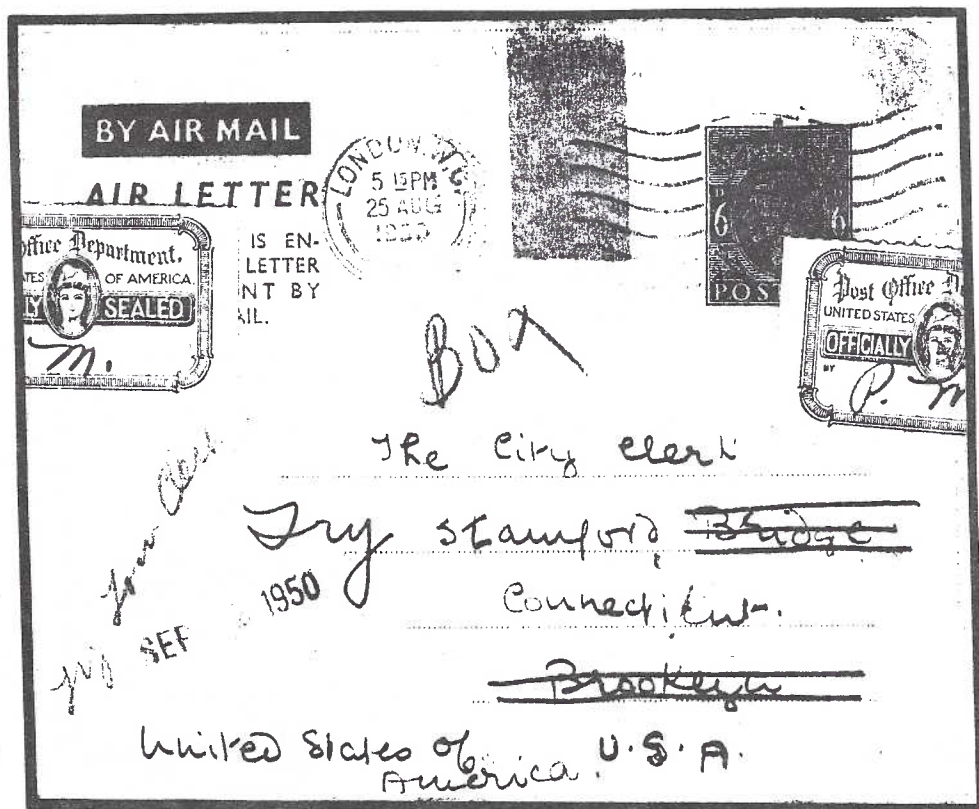 BY AIR MAIL
AIR LETTER
LONDON. W.C.
5 15PM
25 AUG
1950
IS EN-
LETTER
NT BY
AIL.
6 6
POS
ffice Department.
TES OF AMERICA.
LY SEALED
M.
Post Office D
UNITED STATES
OFFICIALLY
BY P. M
Box
The City Clerk
Try Stamford, Bridge
Connecticut.
Brooklyn
United States of America. U.S.A.
Town Clerk
SEP 1950